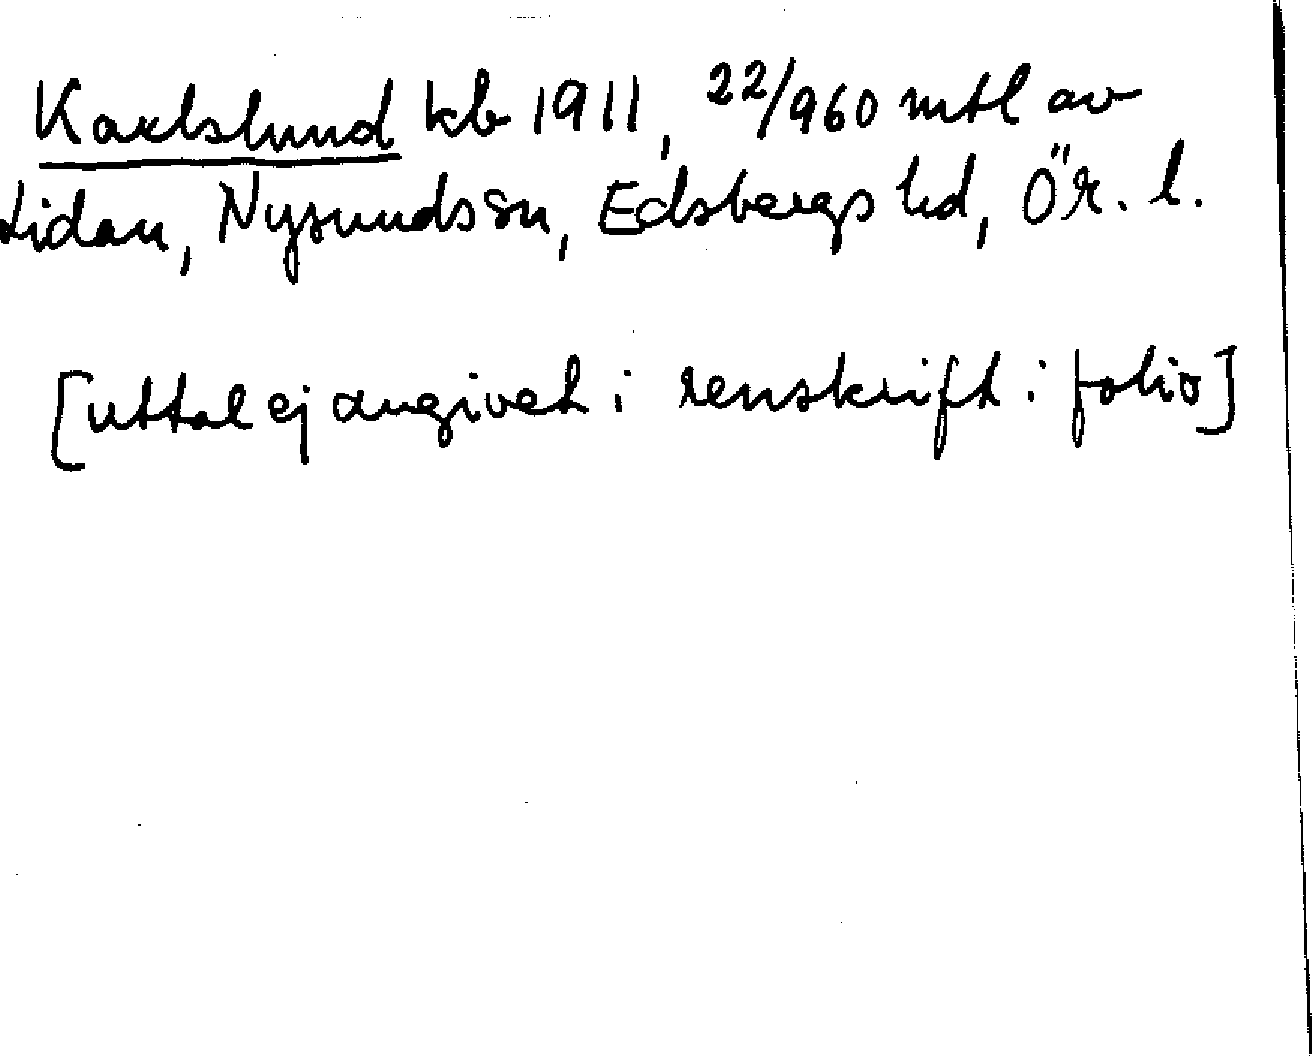 Karlslund kb 1911, 22/960 mtl av
Lidan, Nysunds sn, Edsbergs hd, Ör. l.
[uttal ej angivet i renskrift i folio]